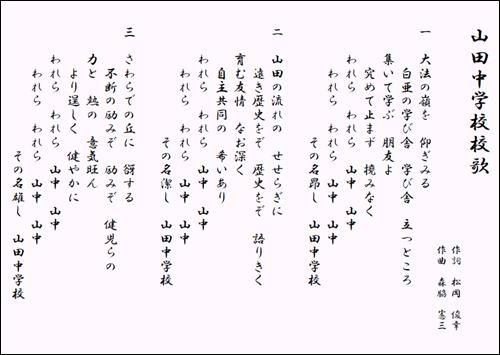 山田中学校校歌
作詞 松岡 俊幸
作曲 森脇 憲三
一 大法の嶺を 仰ぎみる
白亜の学び舎 学び舎 立つところ
集いて学ぶ 朋友よ
究めて止まず 撓みなく
われら われら 山中 山中
われら われら 山中 山中
その名昂し 山田中学校
二 山田の流れの せせらぎに
遠き歴史をぞ 歴史をぞ 語りきく
育む友情 なお深く
自主共同の 希いあり
われら われら 山中 山中
われら われら 山中 山中
その名潔し 山田中学校
三 さわらでの丘に 谺する
不断の励みぞ 励みぞ 健児らの
力と 熱の 意気旺ん
より逞しく 健やかに
われら われら 山中 山中
われら われら 山中 山中
その名雄し 山田中学校